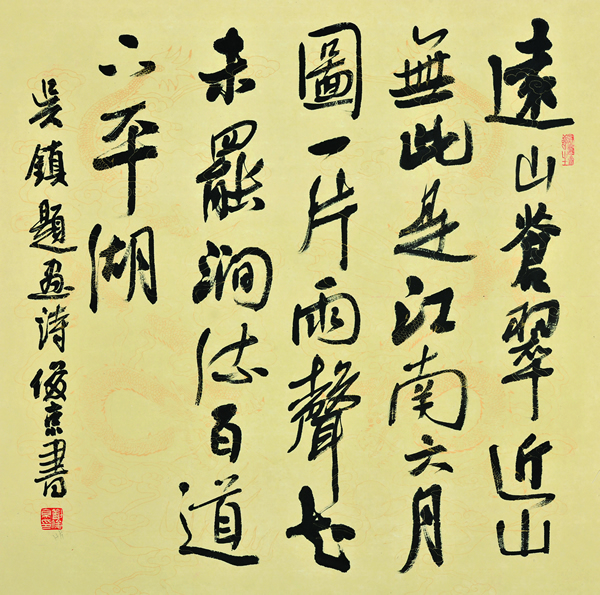 遠山蒼翠近山
無此是江南六月
圖一片雨聲知
未罷澗流百道
下平湖
吳鎮題畫詩 俊京書